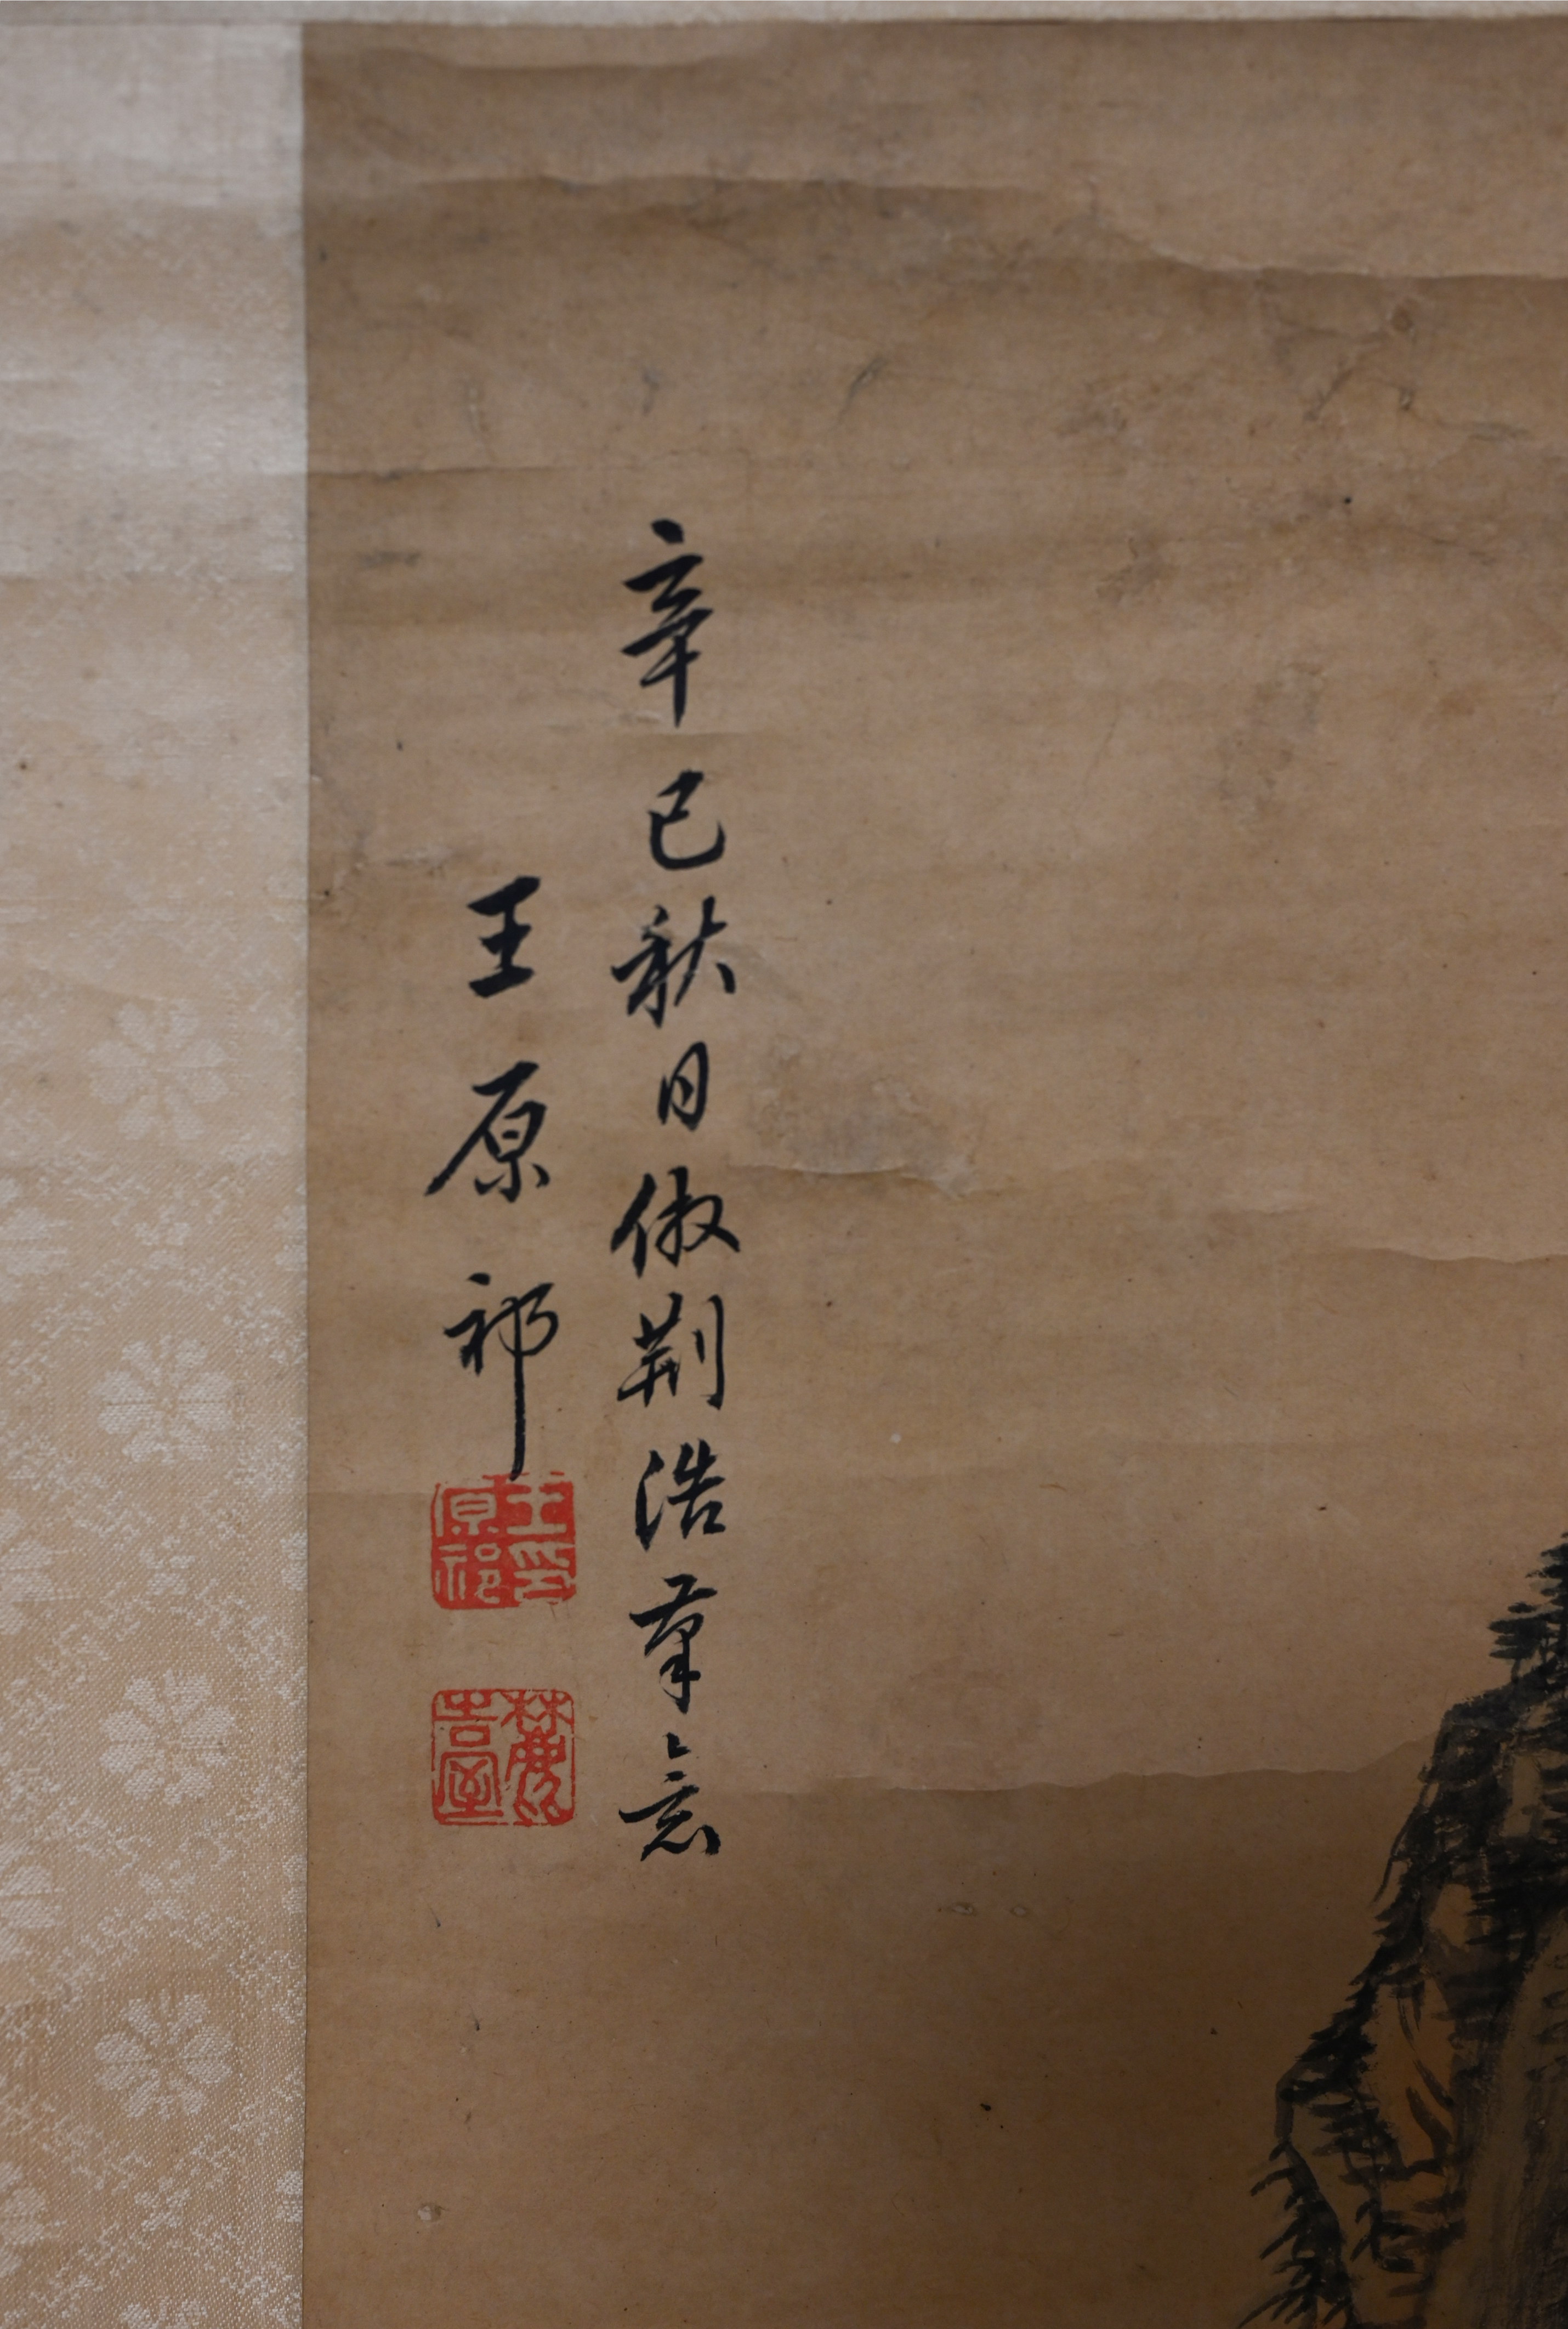 辛巳秋日倣荆浩筆意
王原祁
王原祁印
麓臺